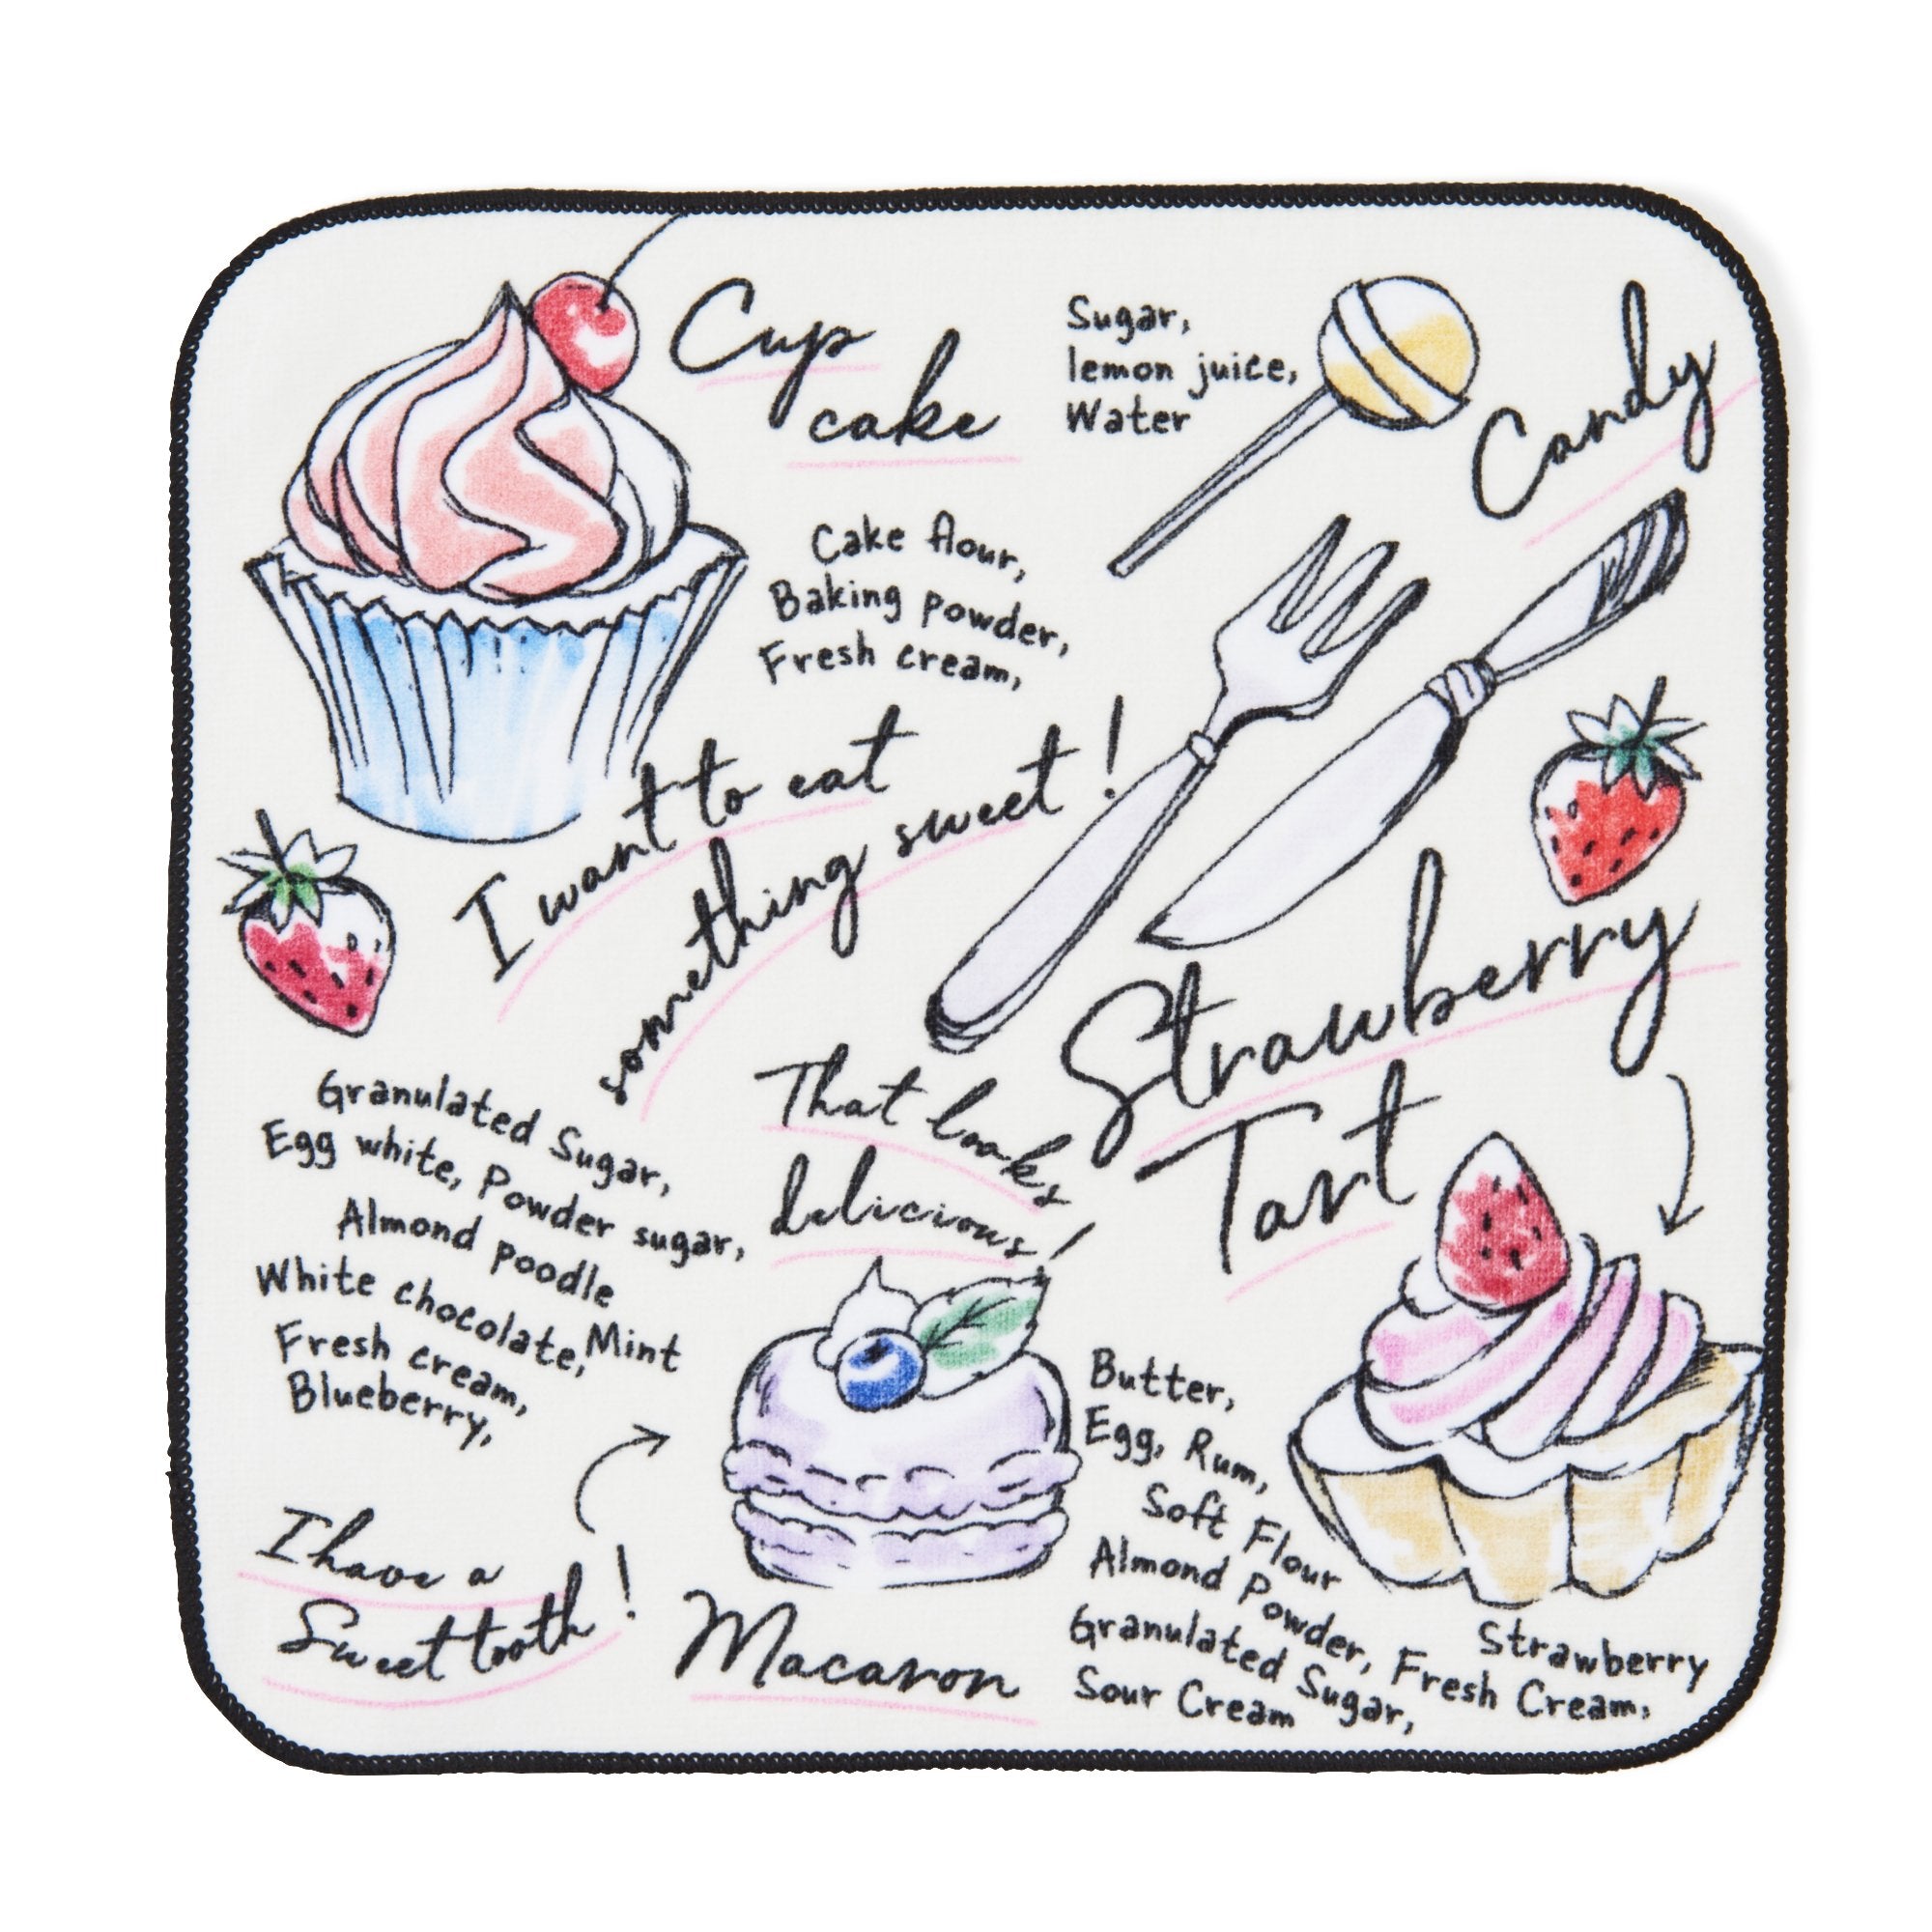 Cup
cake
Sugar,
lemon juice,
Water
Candy
Cake flour,
Baking powder,
Fresh cream,
I want to eat
something sweet!
Strawberry
Tart
That looks
delicious!
Granulated Sugar,
Egg white, Powder sugar,
Almond poodle
White chocolate, Mint
Fresh cream,
Blueberry,
I have a
Sweet tooth!
Macaron
Butter,
Egg, Rum,
Soft Flour
Almond Powder,
Granulated Sugar,
Sour Cream
Strawberry
Fresh Cream,